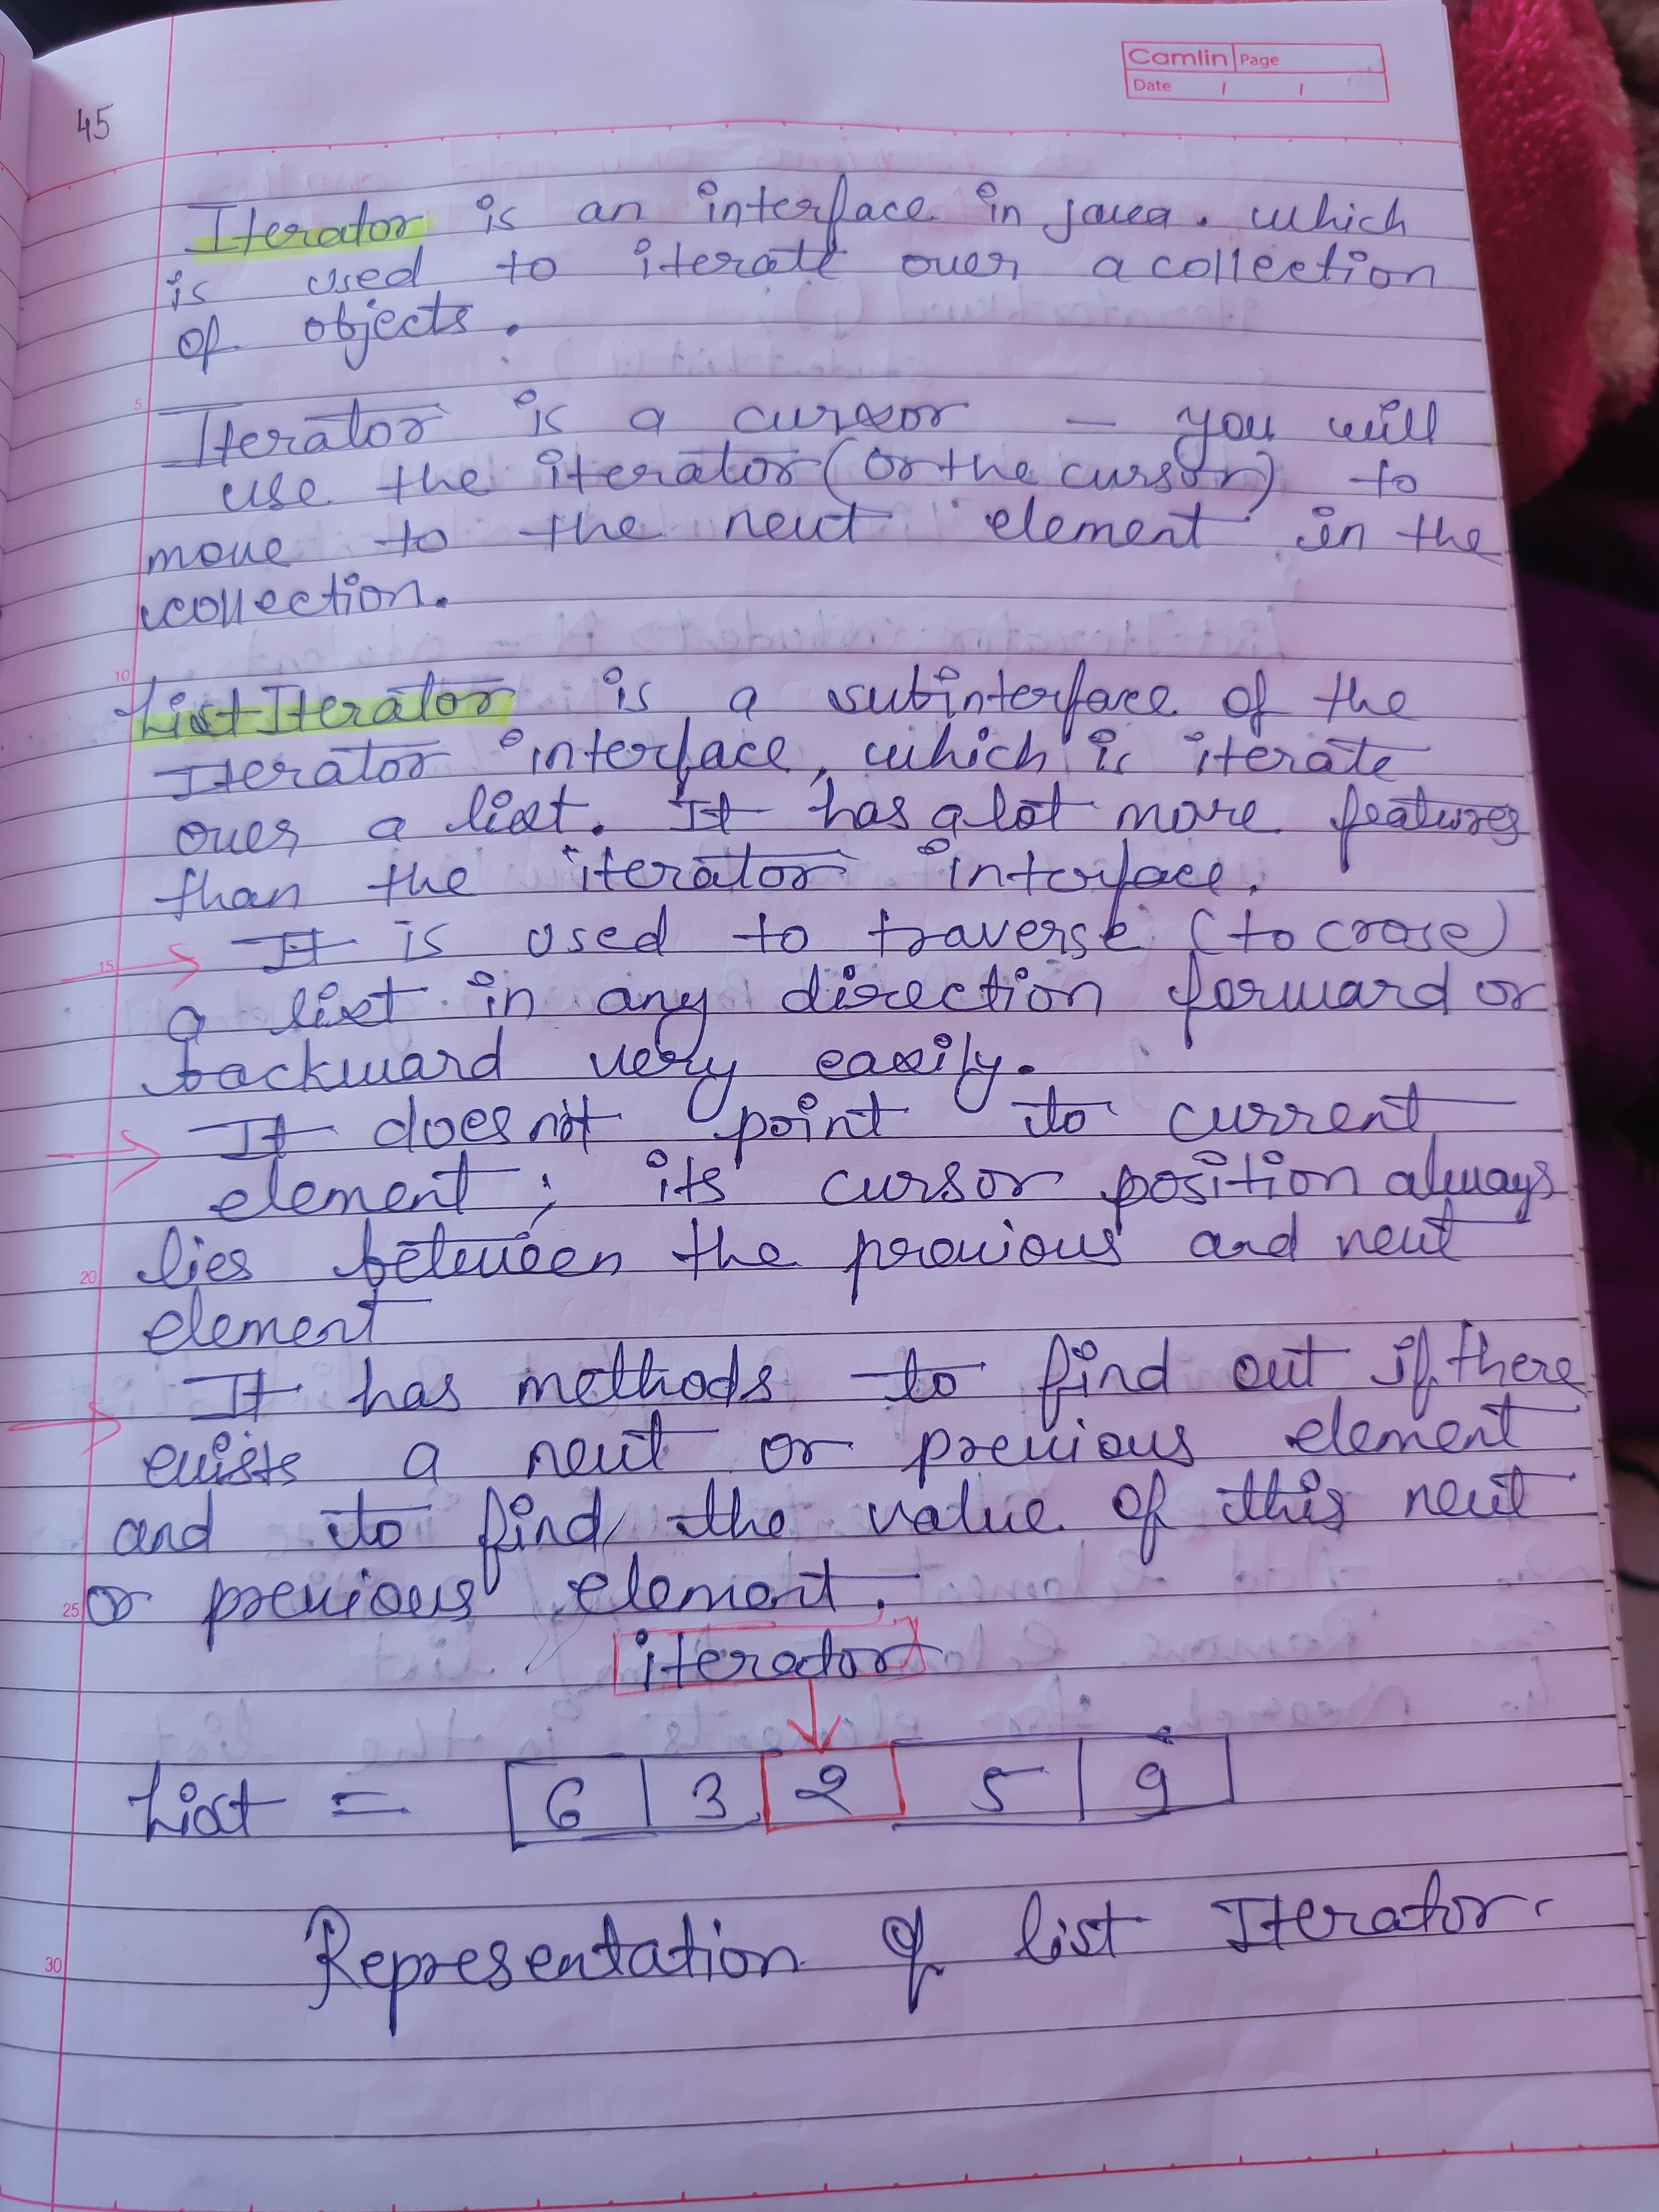 Camlin Page
Date / /
45
Iterator is an interface in java. which
is used to iterate over a collection
of objects.
5
Iterator is a cursor – you will
use the iterator (or the cursor) to
move to the next element in the
collection.
10
ListIterator is a subinterface of the
Iterator interface, which is iterate
over a list. It has a lot more features
than the iterator interface.
15 → It is used to traverse (to crose)
a list in any direction forward or
backward very easily.
→ It does not point to current
element; its cursor position always
20 lies between the previous and next
element
→ It has methods to find out if there
exists a next or previous element
and to find the value of this next
25 or previous element.
iterator
List = 6 3 2 5 9
Representation of list Iterator.
30